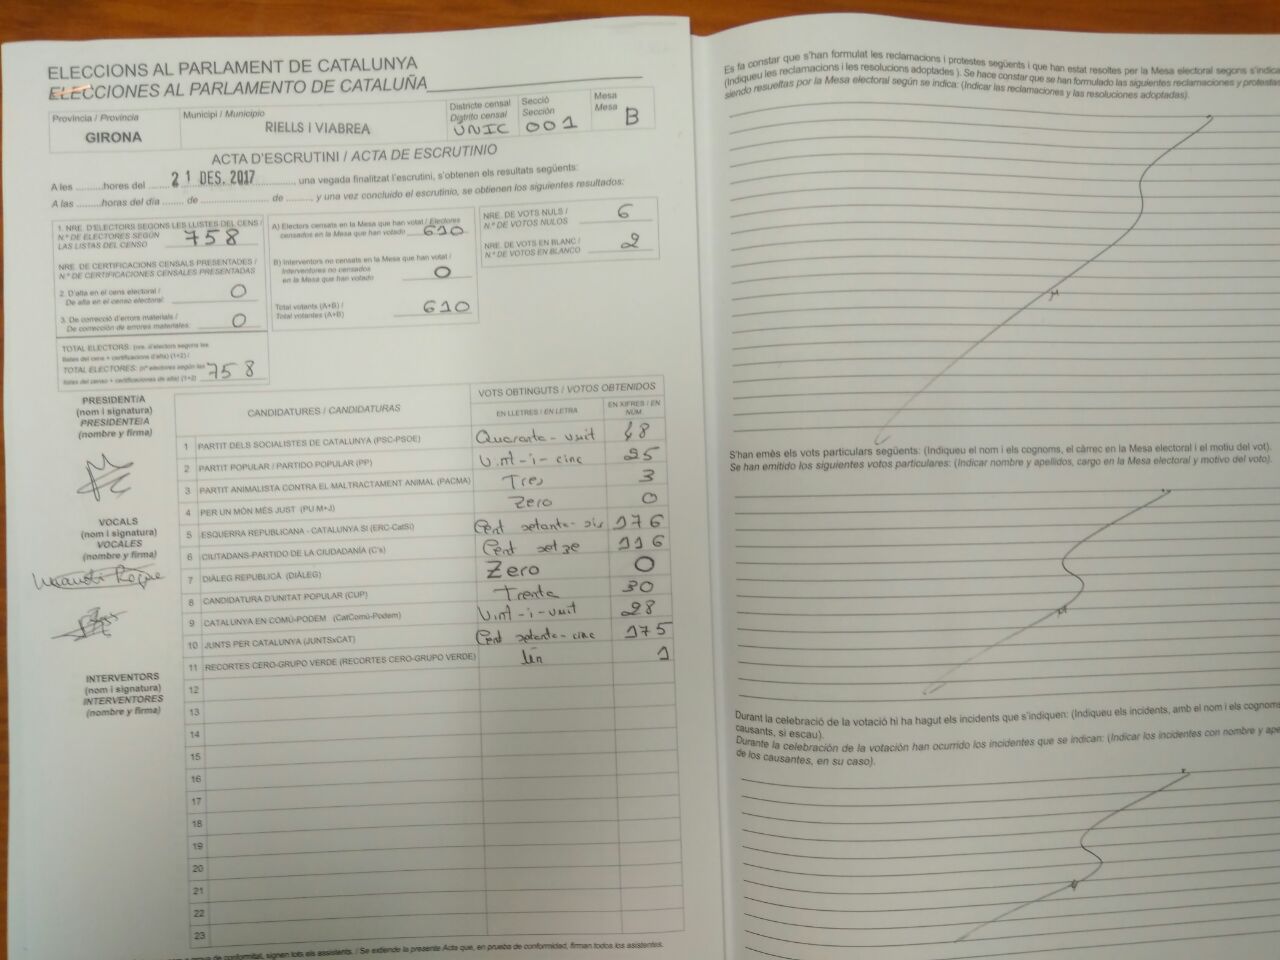 ELECCIONS AL PARLAMENT DE CATALUNYA
ELECCIONES AL PARLAMENTO DE CATALUÑA
Província / Provincia
GIRONA
Municipi / Municipio
RIELLS I VIABREA
Districte censal
Distrito censal
ÚNIC
Secció
Sección
001
Mesa
Mesa
B
ACTA D'ESCRUTINI / ACTA DE ESCRUTINIO
A les .........hores del ...... 21 DES. 2017 ............, una vegada finalitzat l'escrutini, s'obtenen els resultats següents:
A las .........horas del día ....... de .................. de ........, y una vez concluido el escrutinio, se obtienen los siguientes resultados:
1. NRE. D'ELECTORS SEGONS LES LLISTES DEL CENS /
N.º DE ELECTORES SEGÚN
LAS LISTAS DEL CENSO 758
NRE. DE CERTIFICACIONS CENSALS PRESENTADES /
N.º DE CERTIFICACIONES CENSALES PRESENTADAS
2. D'alta en el cens electoral /
De alta en el censo electoral: 0
3. De correcció d'errors materials /
De corrección de errores materiales: 0
TOTAL ELECTORS: (nre. d'electors segons les
llistes del cens + certificacions d'alta) (1+2) /
TOTAL ELECTORES: (nº electores según las
listas del censo + certificaciones de alta) (1+2) 758
A) Electors censats en la Mesa que han votat / Electores
censados en la Mesa que han votado 610
B) Interventors no censats en la Mesa que han votat /
Interventores no censados
en la Mesa que han votado 0
Total votants (A+B) /
Total votantes (A+B) 610
NRE. DE VOTS NULS /
N.º DE VOTOS NULOS 6
NRE. DE VOTS EN BLANC /
N.º DE VOTOS EN BLANCO 2
PRESIDENT/A
(nom i signatura)
PRESIDENTE/A
(nombre y firma)
VOCALS
(nom i signatura)
VOCALES
(nombre y firma)
INTERVENTORS
(nom i signatura)
INTERVENTORES
(nombre y firma)
CANDIDATURES / CANDIDATURAS
VOTS OBTINGUTS / VOTOS OBTENIDOS
EN LLETRES / EN LETRA
EN XIFRES / EN NÚM.
1 PARTIT DELS SOCIALISTES DE CATALUNYA (PSC-PSOE) Quaranta-vuit 48
2 PARTIT POPULAR / PARTIDO POPULAR (PP) Vint-i-cinc 25
3 PARTIT ANIMALISTA CONTRA EL MALTRACTAMENT ANIMAL (PACMA) Tres 3
4 PER UN MÓN MÉS JUST (PUM+J) Zero 0
5 ESQUERRA REPUBLICANA - CATALUNYA SÍ (ERC-CatSí) Cent setanta-sis 176
6 CIUTADANS-PARTIDO DE LA CIUDADANÍA (C's) Cent setze 116
7 DIÀLEG REPUBLICÀ (DIÀLEG) Zero 0
8 CANDIDATURA D'UNITAT POPULAR (CUP) Trenta 30
9 CATALUNYA EN COMÚ-PODEM (CatComú-Podem) Vint-i-vuit 28
10 JUNTS PER CATALUNYA (JUNTSxCAT) Cent setanta-cinc 175
11 RECORTES CERO-GRUPO VERDE (RECORTES CERO-GRUPO VERDE) Un 1
12
13
14
15
16
17
18
19
20
21
22
23
conformitat, signen tots els assistents. / Se extiende la presente Acta que, en prueba de conformidad, firman todos los asistentes.
Es fa constar que s'han formulat les reclamacions i protestes següents i que han estat resoltes per la Mesa electoral segons s'indica
(Indiqueu les reclamacions i les resolucions adoptades ). Se hace constar que se han formulado las siguientes reclamaciones y protestas
siendo resueltas por la Mesa electoral según se indica: (Indicar las reclamaciones y las resoluciones adoptadas).
S'han emès els vots particulars següents: (Indiqueu el nom i els cognoms, el càrrec en la Mesa electoral i el motiu del vot).
Se han emitido los siguientes votos particulares: (Indicar nombre y apellidos, cargo en la Mesa electoral y motivo del voto).
Durant la celebració de la votació hi ha hagut els incidents que s'indiquen: (Indiqueu els incidents, amb el nom i els cognoms
causants, si escau).
Durante la celebración de la votación han ocurrido los incidentes que se indican: (Indicar los incidentes con nombre y ape
de los causantes, en su caso).